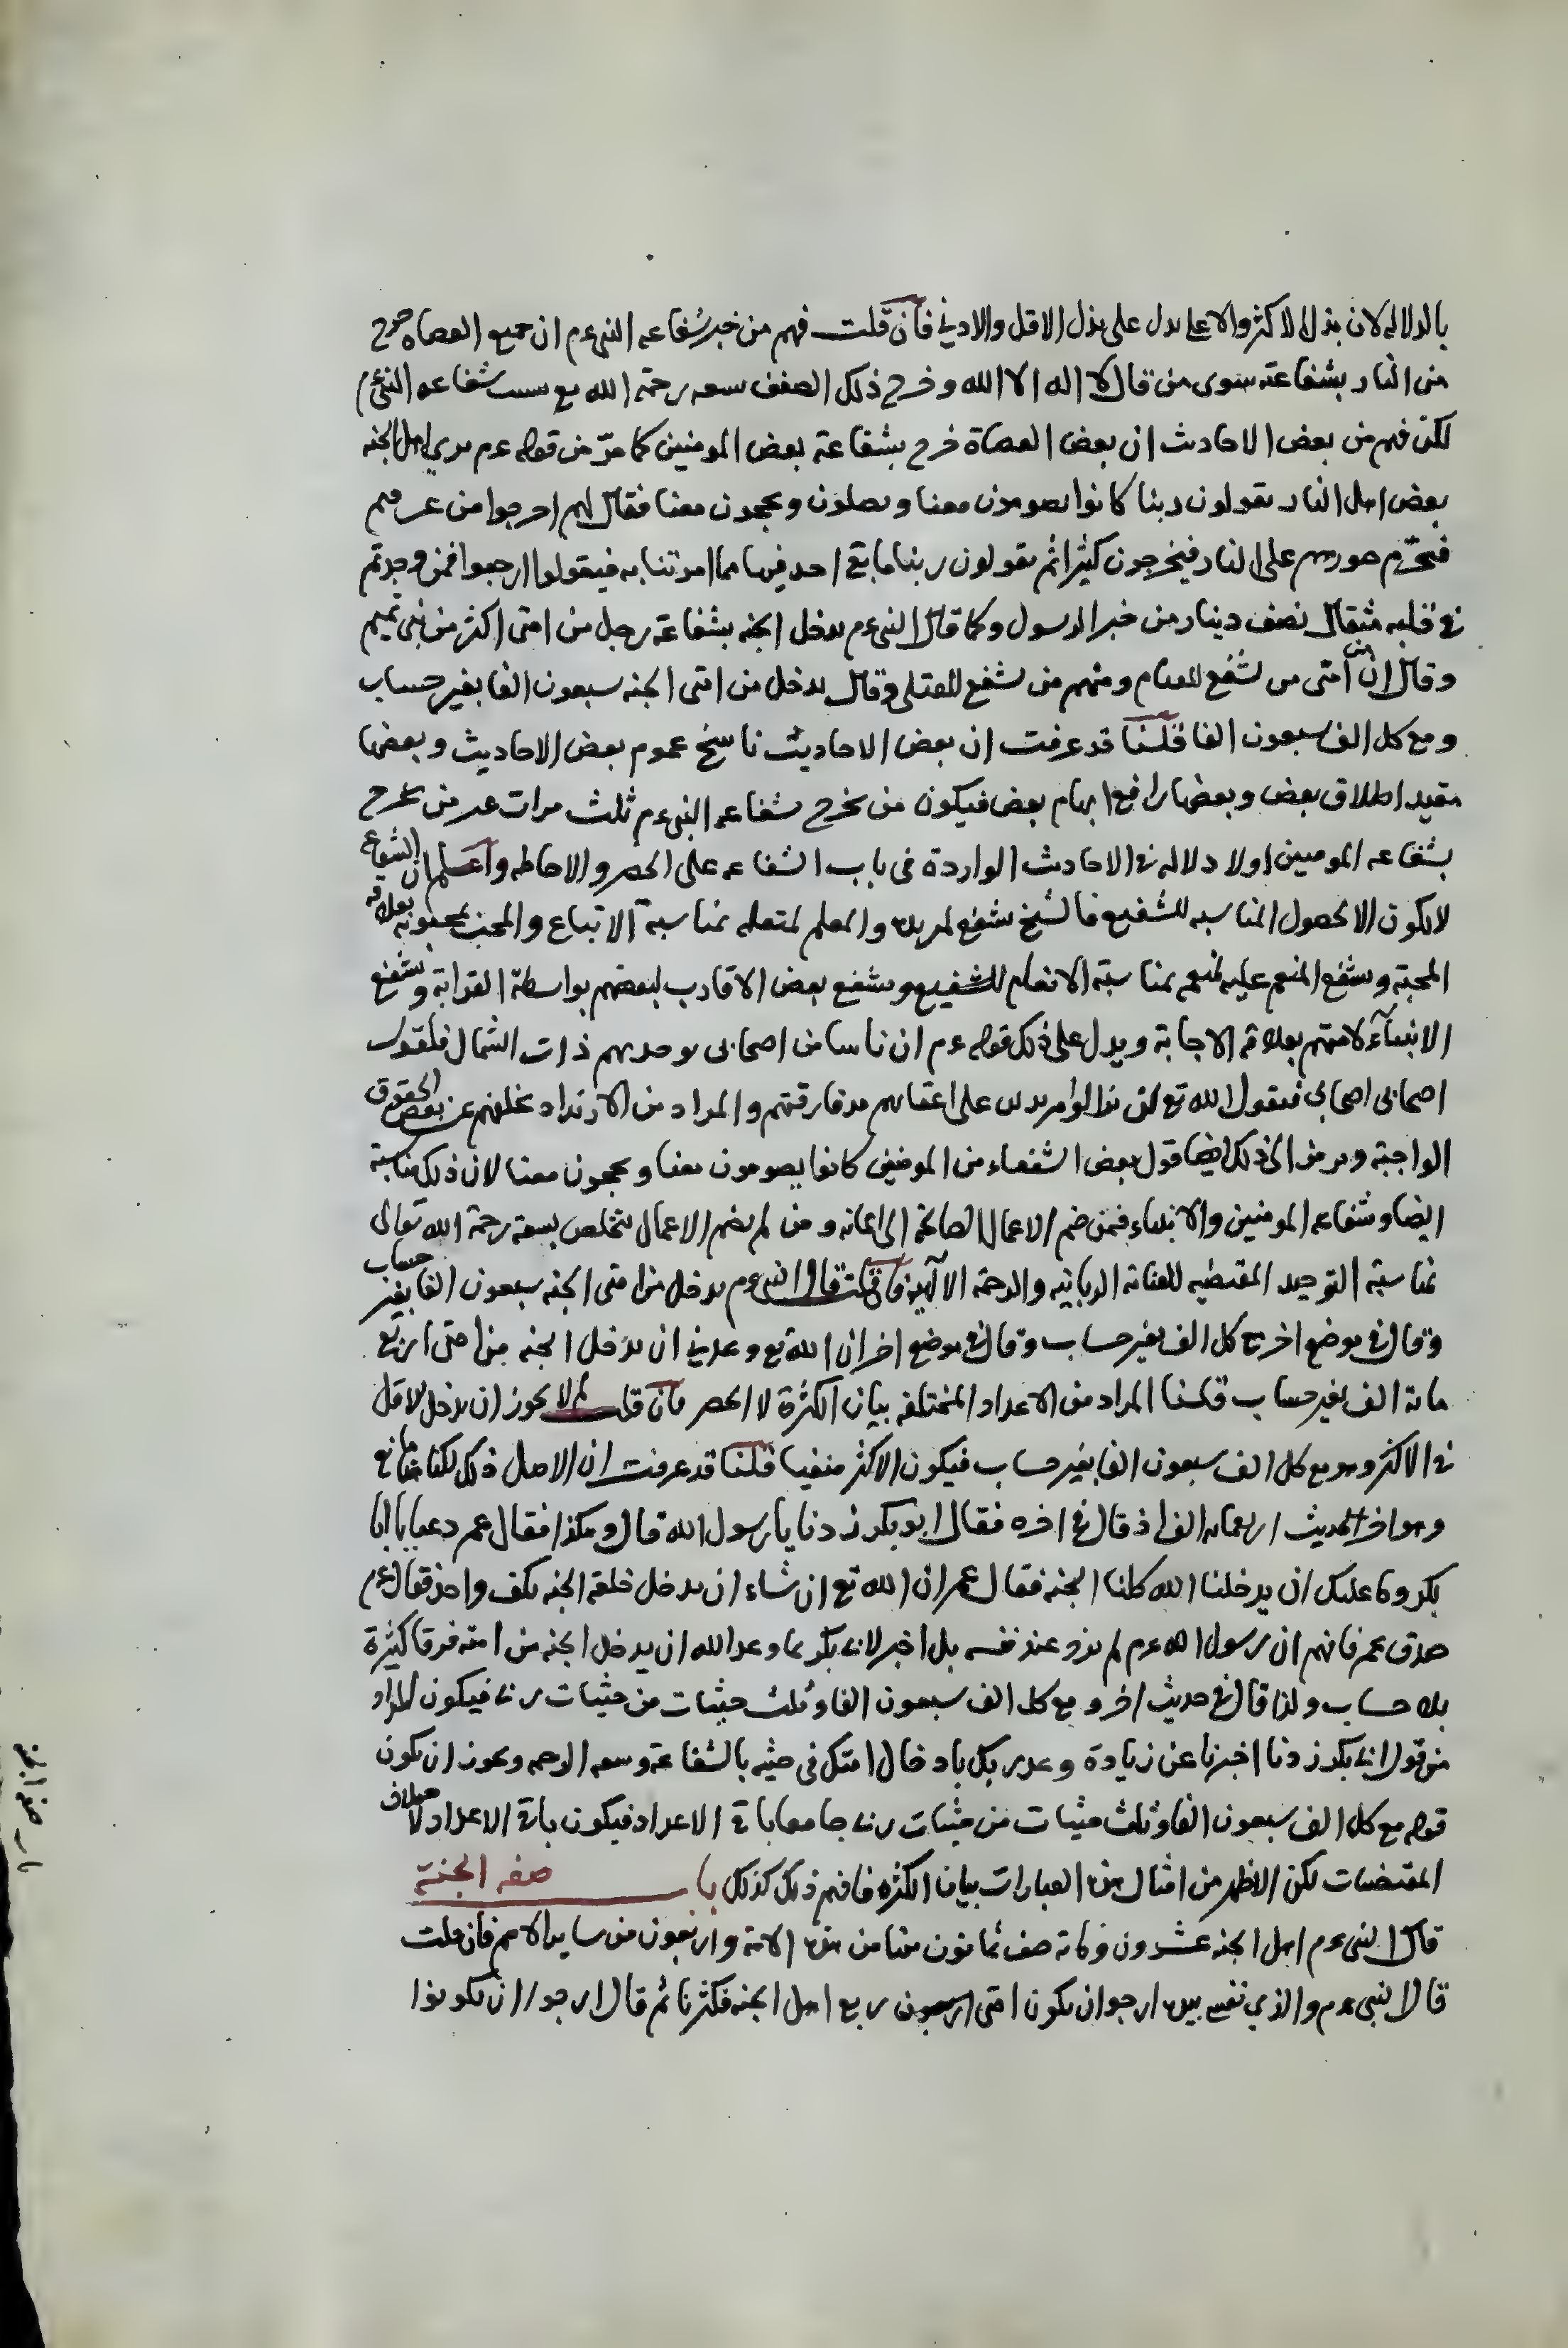 بالدلاله لان بذل الاكثر والاعلى يدل على بذل الاقل والادنى فان قلت فهم من خبر شفاعه النبى عم ان جميع العصاه خرج
من النار بشفاعته سوى من قال لا اله الا الله وخرج ذلك الصنف بسعه رحمة الله تع بسبب شفاعه النبى عم
لكن فهم من بعض الاحاديث ان بعض العصاة خرج بشفاعة بعض المومنين كما مرّ من قوله عم يرى اهل الجنه
بعض اهل النار يقولون ربنا كانوا يصومون معنا ويصلون ويحجون معنا فقال لهم اخرجوا من عرفتم
فتحرّم صورهم على النار فيخرجون كثيرا ثم يقولون ربنا ما بقى احد فيها مما امرتنا به فيقولوا ارجعوا فمن وجدتم
فى قلبه مثقال نصف دينار من خير الرسول وكما قال النبى عم يدخل الجنه بشفاعة رجل من امتى اكثر من بنى تميم
وقال ان من امتى من يشفع للفئام ومنهم من يشفع للقبيله وقال يدخل من امتى الجنه سبعون الفا بغير حساب
ومع كل الف سبعون الفا قلنا قد عرفت ان بعض الاحاديث ناسخ عموم بعض الاحاديث وبعضها
مقيد اطلاق بعض وبعضها رافع ابهام بعض فيكون من يخرج بشفاعه النبى عم ثلث مرات غير من يخرج
بشفاعه المومنين اولا دلاله فى الاحاديث الواردة فى باب الشفاعه على الحصر والاحاطه واعلم ان الشفاعه
لا يكون الا بحصول المناسبه للشفيع فالشيخ يشفع لمريده والمعلم لمتعلمه بمناسبة الاتباع والمحب لمحبوبه بعلاقه
المحبة ويشفع المنعم عليه لمنعمه بمناسبة الانعام للشفيع ويشفع بعض الاقارب لبعضهم بواسطة القرابة ويشفع
الانبياء لامتهم بعلاقة الاجابة ويدل على ذلك قوله عم ان ناسا من اصحابى يوخذ بهم ذات الشمال فاقول
اصحابى اصحابى فيقول الله تع لن يزالوا مرتدين على اعقابهم مذ فارقتهم والمراد من الارتداد تخلفهم عن بعض الحقوق
الواجبة ويرمز الى ذلك ايضا قول بعض الشفعاء من المومنين كانوا يصومون معنا ويحجون معنا لان ذلك مناسبة
ايضا وشفاعه المومنين والانبياء فمن ضم الاعمال الصالحة الى ايمانه ومن لم يضم الاعمال يتخلص بسعة رحمة الله تعالى
بمناسبة التوحيد المقتضيه للعناية الربانيه والرحمة الالهية فان قلت قال النبى عم يدخل من امتى الجنه سبعون الفا بغير حساب
وقال فى موضع اخر مع كل الف بغير حساب وقال فى موضع اخر ان الله تع وعدنى ان يدخل الجنه من امتى اربع
ماية الف بغير حساب قلنا المراد من الاعداد المختلفه بيان الكثرة لا الحصر فان قلت لم لا يجوز ان يدخل الاقل
فى الاكثر وهو مع كل الف سبعون الفا بغير حساب فيكون الاكثر منفيا قلنا قد عرفت ان الاصل ذلك لكنا هنا مانع
وهو اخر الحديث اربعمايه الف اذ قال فى اخره فقال ابو بكر زدنا يا رسول الله قال وهكذا فقال عمر دعنا يا ابا
بكر وما عليك ان يدخلنا الله كلنا الجنه فقال عمر ان الله تع ان شاء ان يدخل خلقه الجنه بكف واحد فقال عم
صدق عمر فانهم ان رسول الله عم لم يزد عند نفسه بل اخبر لابى بكر بما وعد الله ان يدخل الجنه من امته فرقا كثيرة
بلا حساب ولذا قال فى حديث اخر ومع كل الف سبعون الفا وثلث حثيات من حثيات ربى فيكون المراد
من قول ابى بكر زدنا اخبرنا عن زيادة وعد ربك بادخال امتك فى حثيه بالشفاعة وسعه الرحمه ويجوز ان يكون
قوله مع كل الف سبعون الفا وثلث حثيات من حثيات ربى جامعا باقى الاعداد فيكون باقى الاعداد لاختلاف
المقتضيات لكن الاظهر من امثال هذه العبارات بيان الكثره فافهم ذلك كذلك باب صفه الجنة
قال النبى عم اهل الجنه عشرون وماية صف ثمانون منها من هذه الامة واربعون من ساير الامم فان قلت
قال النبى عم والذي نفسى بيده ارجوا ان يكون امتى ربع اهل الجنه فكثرنا ثم قال ارجوا ان تكونوا
باب صفة الجنة